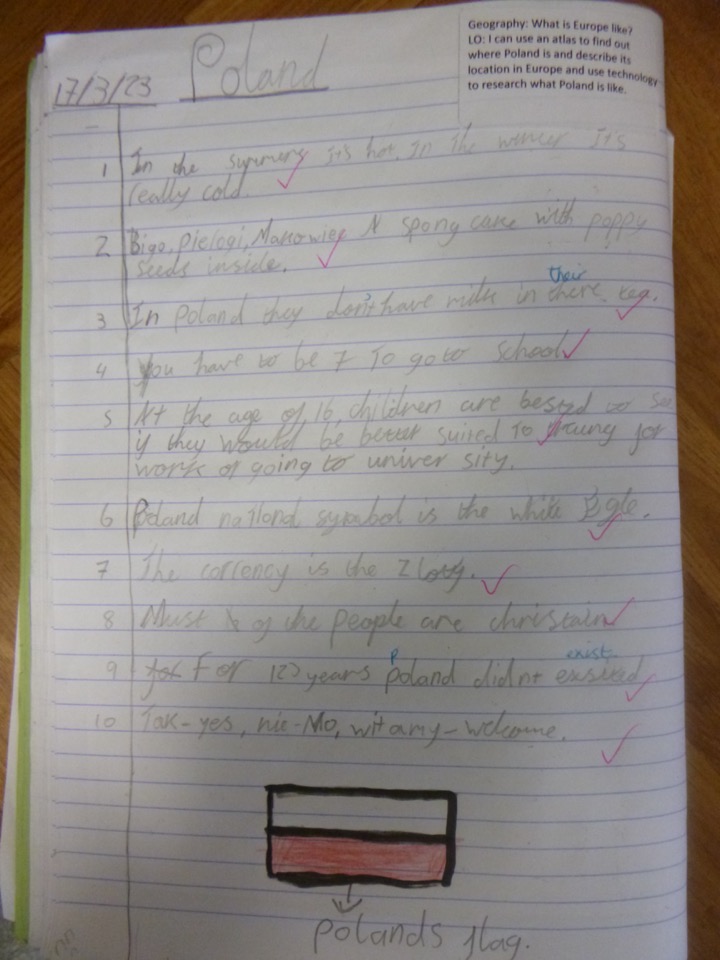 Geography: What is Europe like?
LO: I can use an atlas to find out
where Poland is and describe its
location in Europe and use technology
to research what Poland is like.
17/3/23 Poland
1 In the summers it's hot. In the winer It's
really cold.
2 Bigo, pielogi, Makowiec A spong cake with poppy
seeds inside.
their
3 In Poland they don't have milk in there tea.
4 you have to be 7 To go to school
5 At the age of 16, children are bested to see
if they would be better suited To for
work or going to univer sity.
6 Poland national symbol is the white Egle.
7 The correncey is the Zloty.
8 Must of the people are christain
p exist
9 for For 123 years poland didnt exsisted
10 Tak-yes, nie-No, witamy-welcome.
polands flag.